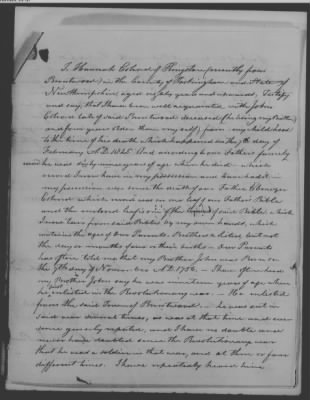 I, Hannah Colcord of Kingston (recently from
Brentwood) in the County of Rockingham and State of
New Hampshire aged eighty years and upwards, Testify
and say, that I have been well acquainted with John
Colcord late of said Brentwood deceased (he being my Brother
and four years older than my self) from my childhood
to the time of his death which happened on the 9th day of
February A.D. 1845. And according to our Fathers family
record he was eighty nine years of age when he died which
record I now have in my possession and have had it in
my possession ever since the death of our Father Ebenezer
Colcord which record was on one leaf of our Fathers Bible
and the enclosed leaf is one of the said Bible which
I now have from said Bible by my own hands, which
contains the ages of our Parents, Brothers & sisters, but not
the day or months of our or their births – Our Parents
has often told me that my Brother John was Born on
the 9th day of November A.D. 1756. – I have often heard
my Brother John say he was nineteen years of age when
he enlisted in the Revolutionary war – He enlisted
from the said Town of Brentwood – he was out in
said war several times, as was at that time and ever
since generally reputed, and I have no doubt and
never have doubted since the Revolutionary war
that he was a soldier in that war, and at three or four
different times. I have repeatedly heard him